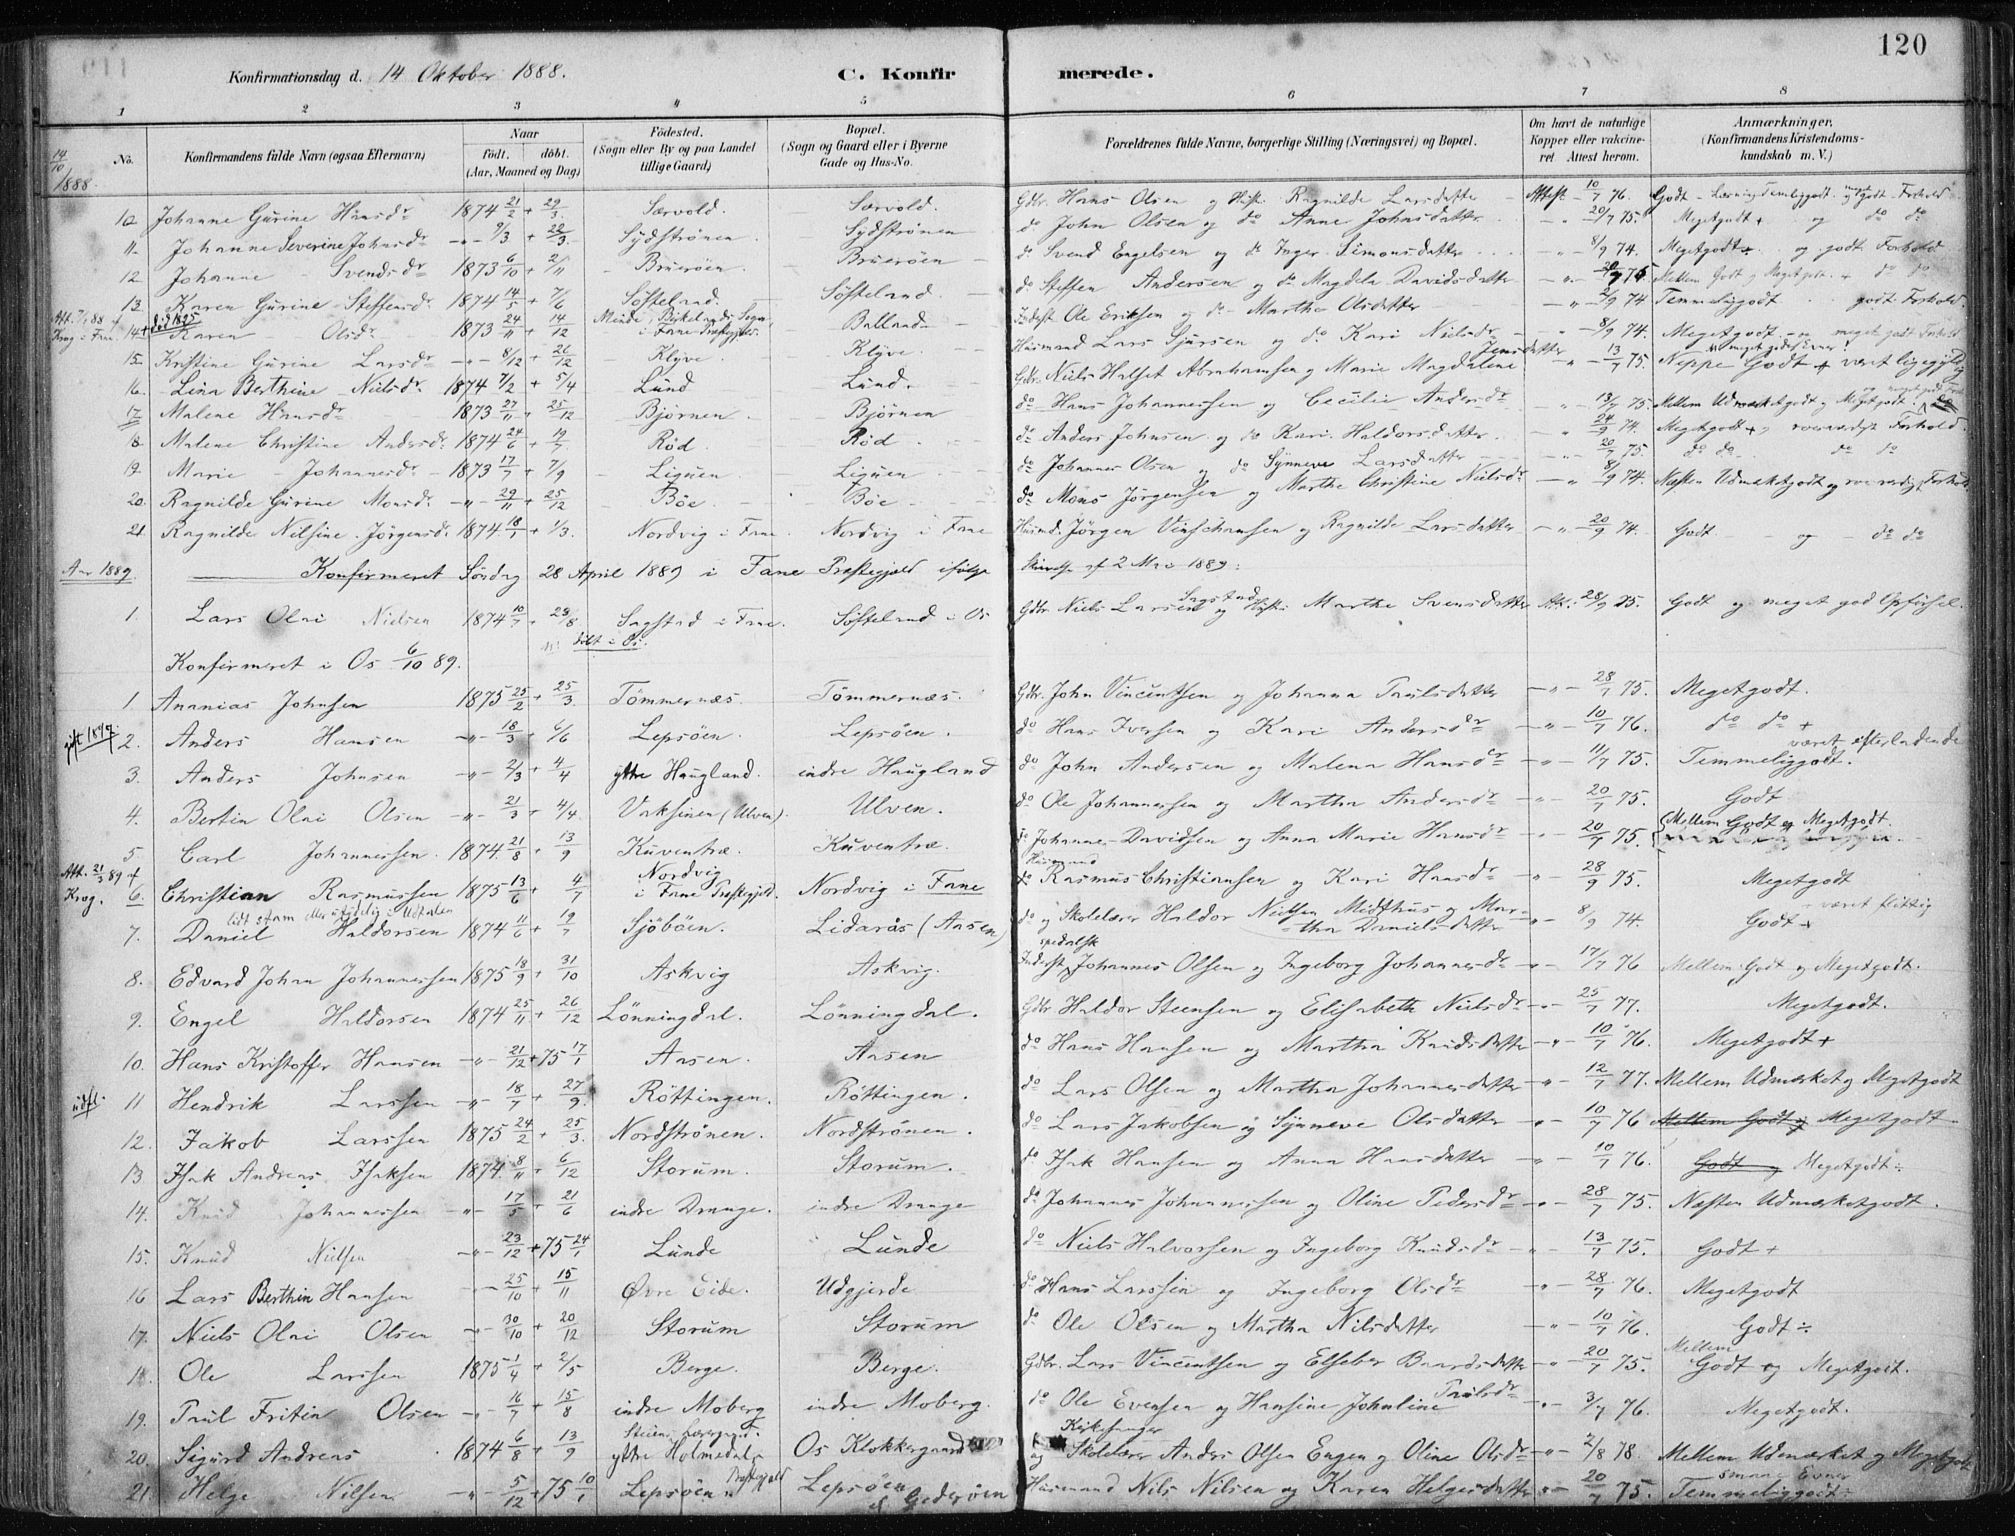 120
Konfirmationsdag d. 14 Oktober 1888. C. Konfirmerede.
1 2 3 4 5 6 7 8
No. Konfirmandens fulde Navn (ogsaa Efternavn) Naar født, døbt. (Aar, Maaned og Dag) Fødested. (Sogn eller By og paa Landet tillige Gaard) Bopæl. (Sogn og Gaard eller i Byerne Gade og Hus-No. Forældrenes fulde Navne, borgerlige Stilling (Næringsvei) og Bopæl. Om havt de naturlige Kopper eller vakcineret Attest herom. Anmærkninger. (Konfirmandens Kristendomskundskab m. V.)
14/10 1888.
10 Johanne Gurine Hansdr 1874 21/2 + 29/3. Særvold. Særvold. Gdbr. Hans Olsen og Hust. Ragnilde Larsdatter Attest 10/7 76. Godt
11. Johanne Severine Johnsdr 9/3 + 22/3. Sydstrønen Sydstrønen do John Olsen og do Anne Johnsdatter 20/7 75. Megetgodt + og do do
12. Johanne Svendsdr 1873 6/10 + 2/11 Bruerøen Bruerøen do Svend Engelsen og do Inger Simonsdatter 8/9 74. Megetgodt og godt Forhold
13. Karen Gurine Steffensdr 1874 14/5 + 7/6 Søfteland. Søfteland. do Steffen Andersen og do Magdela Davidsdatter Mellem Godt og Megetgodt + do do
Att. 7/7 88 Krog i Fane. 14 død 1895 Karen Olsdr 1873 24/11 + 14/12 Birkelands Sogn i Fane Præstegjeld. Balland Inderst Ole Eriksen og do Martha Olsdatter 2/9 74 Temmeliggodt godt Forhold.
15. Kristine Gurine Larsdr 8/12 + 26/12 Klyve Klyve Husmand Lars Sjursen og do Kari Nielsdr 8/9 74. Megetgodt meget godt Forhold
16. Lina Berthine Nielsdr. 1874 7/2 + 5/4 Lund Lund. Gdbr. Niels Halset Abrahamsen og Marie Magdalene Jensdatter 13/7 75. Neppe Godt + været ligegyldig
17 Malene Hansdr 1873 27/11 + 25/12 Bjørnen Bjørnen do Hans Johannessen og Cecilie Andersdr 13/7 75. Mellem Udmærketgodt og Megetgodt.
18. Malene Christine Andersdr. 1874 24/6 + 19/7 Rød Rød do Anders Johnsen og do Kari Haldorsdatter 24/9 74. Megetgodt + og rosværdigt Forhold.
19. Marie Johannesdr 1873 17/7 + 7/9 Liguen Liguen do Johannes Olsen og do Synneve Larsdatter 20/7 75 do do do do
20. Ragnilde Gurine Monsdr 29/11 + 25/12 Bøe Bøe do Mons Jørgensen og Marthe Christine Nielsdr 8/9 74. Næsten Udmærketgodt og rosværdigt Forhold
21 Ragnilde Nilsine Jørgensdr. 1874 18/1 + 1/3. Nordvig i Fane Nordvig i Fane Husmd. Jørgen Vinschansen og Ragnilde Larsdatter 20/9 74. Godt og do do
Aar 1889 Konfirmeret Søndag 28 April 1889 i Fane Præstegjeld ifølge Skrivelse af 2 Mai 1889:
1. Lars Olai Nielsen 1874 10/7 + 23/8 Sagstad i Fane. Søfteland i Os Gdbr. Niels Larsen Sagstad og Hust. Marthe Svensdatter Att: 28/9 75. Godt og meget god Opførsel.
døbt i Os.
Konfirmeret i Os 6/10 89.
1 Ananias Johnsen 1875 25/2 + 25/3. Tømmernæs Tømmernæs. Gdbr. John Vincentsen og Johanna Paulsdatter 28/7 75. Megetgodt.
gift 1897 2. Anders Hansen 18/3 + 6/6 Lepsøen. Lepsøen. do Hans Iversen og Kari Andersdr 10/7 76. do do +
3. Anders Johnsen 2/3 + 4/4 ytre Haugland. indre Haugland do John Andersen og Malena Hansdr 11/7 75. været efterladende Temmeliggodt.
4. Bertin Olai Olsen 21/3 + 4/4 Vaksinen (Ulven). Ulven. do Ole Johannessen og Martha Andersdr 20/7 75. Godt
5 Carl Johannessen. 1874. 21/8 + 13/9 Kuventræ. Kuventræ. do Johannes Davidsen og Anna Marie Hansdr 20/7 75. Mellem Godt og Megetgodt.
Att. 21/3 89 Krog. 6. Christian Rasmussen 1875 13/6 + 4/7 Nordvig i Fane Præstegjeld. Nordvig i Fane Husmand Rasmus Christiansen og Kari Hansdr 28/9 75. Megetgodt
7. lidt stam eller utydelig i Udtalen Daniel Haldorsen 1874 11/6 + 19/7 Sjøbøen. Lidarås (Aasen) do og Skolelærer Haldor Nielsen Midthus og Martha Danielsdatter 8/9 74. været flittig Godt +
8. Edvard Johan Johannessen 1875 18/9 + 31/10 Askvig Askvig. spedalsk Inderst Johannes Olsen og Ingeborg Johannesdr 17/7 76 Mellem Godt og Megetgodt.
9. Engel Haldorsen 1874 25/11 + 26/12 Lønningdal. Lønningdal. Gdbr Haldor Steensen og Elisabeth Nielsdr 25/7 77. Megetgodt.
10. Hans Kristoffer Hansen 21/12 + 75 17/1 Aasen. Aasen do Hans Hansen og Martha Knudsdatter 10/7 76. Megetgodt +
udfl. 11 Hendrik Larssen 18/7 + 27/9. Røttingen. Røttingen. do Lars Olsen og Martha Johannesdatter 12/7 77. Mellem Udmærket og Megetgodt
12. Jakob Larssen 1875 24/2 + 25/3. Nordstrønen. Nordstrønen. do Lars Jakobsen og Synneve Olsdatter 10/7 76 Mellem Godt og Megetgodt
13 Isak Andreas Isaksen 1874. 8/11 + 6/12 Storum. Storum. do Isak Hansen og Anna Hansdatter 10/7 76. Godt og Megetgodt ÷
14. Knud Johannessen 17/5 + 21/6 indre Drange. indre Drange do Johannes Johannessen og Oline Pedersdr 28/7 75. Næsten Udmærketgodt.
15. Knud Nielsen 23/12 + 75 24/1 Lunde Lunde do Niels Halvorsen og Ingeborg Knudsdr 13/7 75. Godt +
16 Lars Berthin Hansen 25/10 + 15/11 Øvre Eide. Udgjerde do Hans Larssen og Ingeborg Olsdr 28/7 76. Megetgodt
17. Niels Olai Olsen 30/10 + 20/12 Storum Storum do Ole Olsen og Martha Nilsdatter 10/7 76. Godt ÷
18. Ole Larssen 1875 1/4 + 2/5 Berge. Berge. Gdbr. Lars Vincentsen og Elseber Baardsdatter 20/7 75. Mellem Godt og Megetgodt.
19. Paul Fritin Olsen 16/7 + 15/8 indre Moberg indre Moberg. do Ole Evensen og Hansine Johnline Paulsdr 3/7 76. Megetgodt.
20. Sigurd Andreas 1874 6/8 + 13/9 ytre Holmedals Præstegjeld Os Klokkergaard Kirkesanger og Skolelærer Anders Olsen Engen og Oline Olsdr 2/8 78. Mellem Udmærket og Megetgodt
21 Helge Nilsen 5/12 + 75 10/1 Lepsøen Lepsøen Gedeøen Husmand Nils Nilsen og Karen Helgesdatter 20/7 75. smaae Evner Temmeliggodt ÷